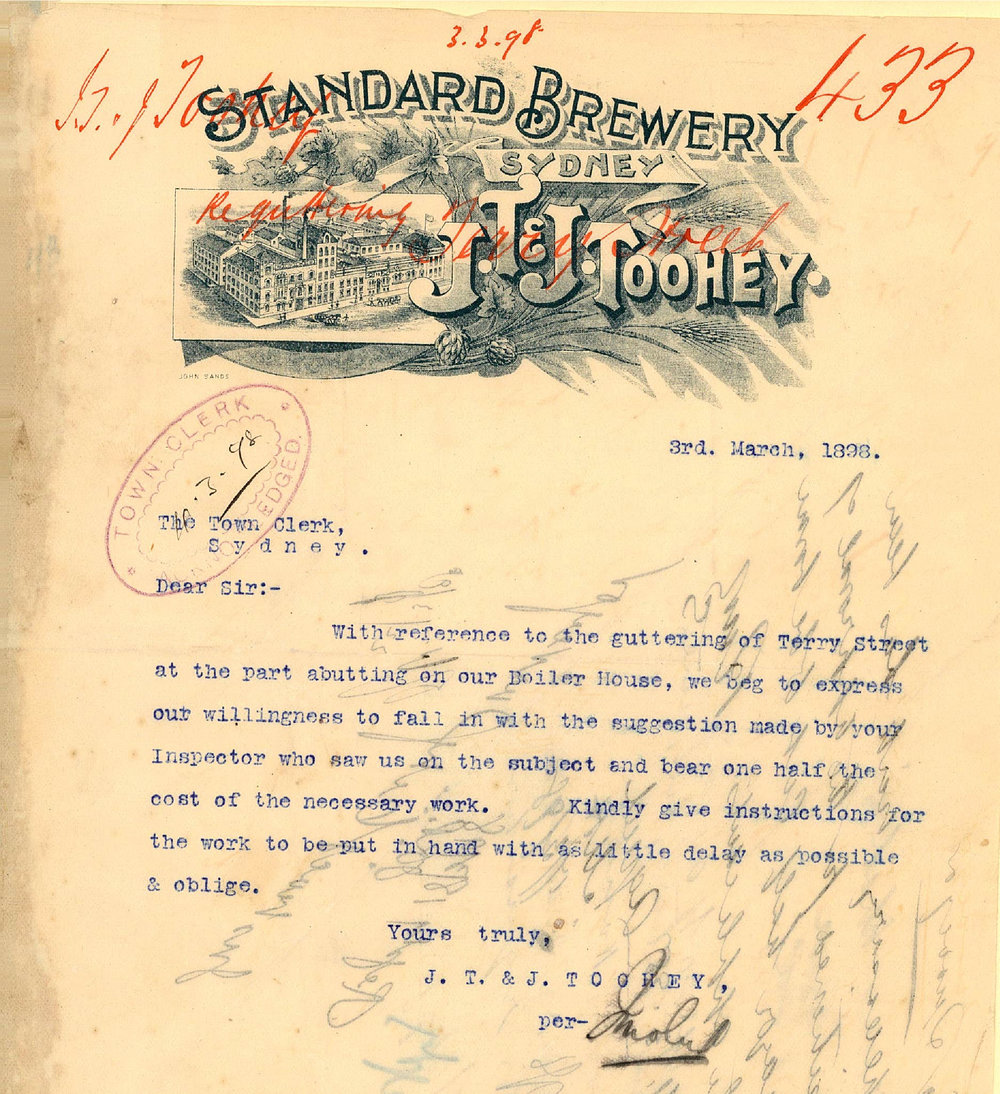 3.3.98
J. T. & J Toohey
433
STANDARD BREWERY
SYDNEY
J.T. & J. TOOHEY.
Reguttering Terry Street
JOHN SANDS
TOWN CLERK
EDGED.
3-98
3rd. March, 1898.
The Town Clerk,
Sydney.
Dear Sir:-
With reference to the guttering of Terry Street
at the part abutting on our Boiler House, we beg to express
our willingness to fall in with the suggestion made by your
Inspector who saw us on the subject and bear one half the
cost of the necessary work. Kindly give instructions for
the work to be put in hand with as little delay as possible
& oblige.
Yours truly,
J. T. & J. TOOHEY,
per-